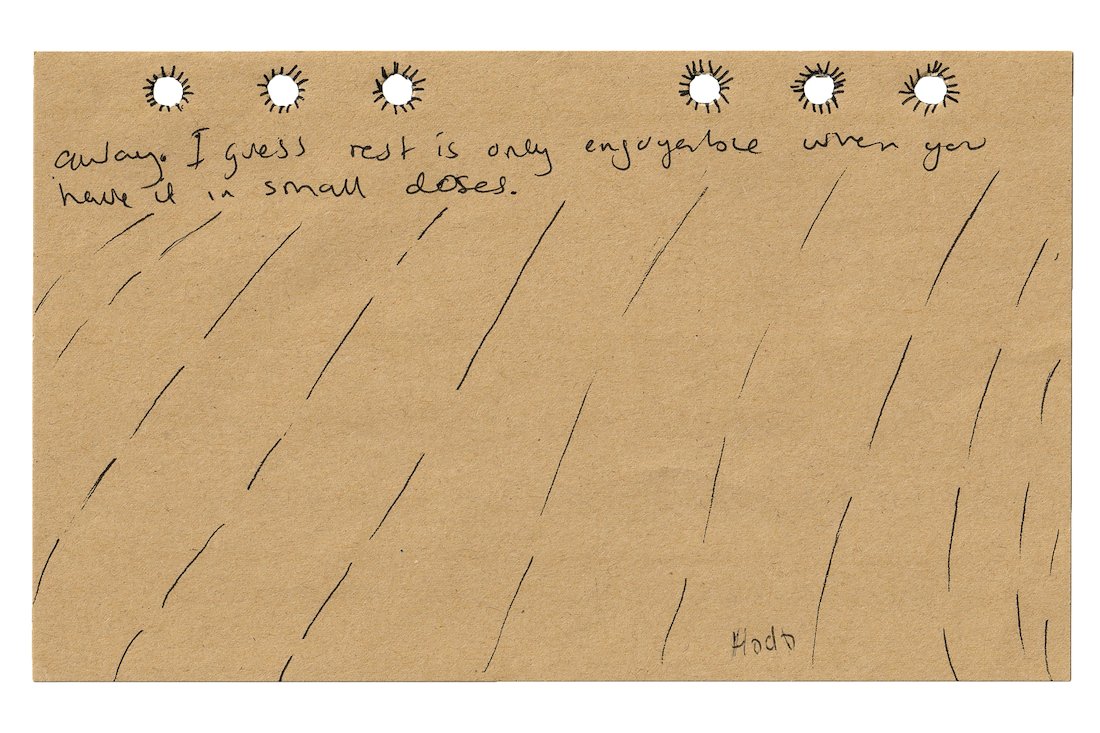 away. I guess rest is only enjoyable when you
have it in small doses.
Hodo